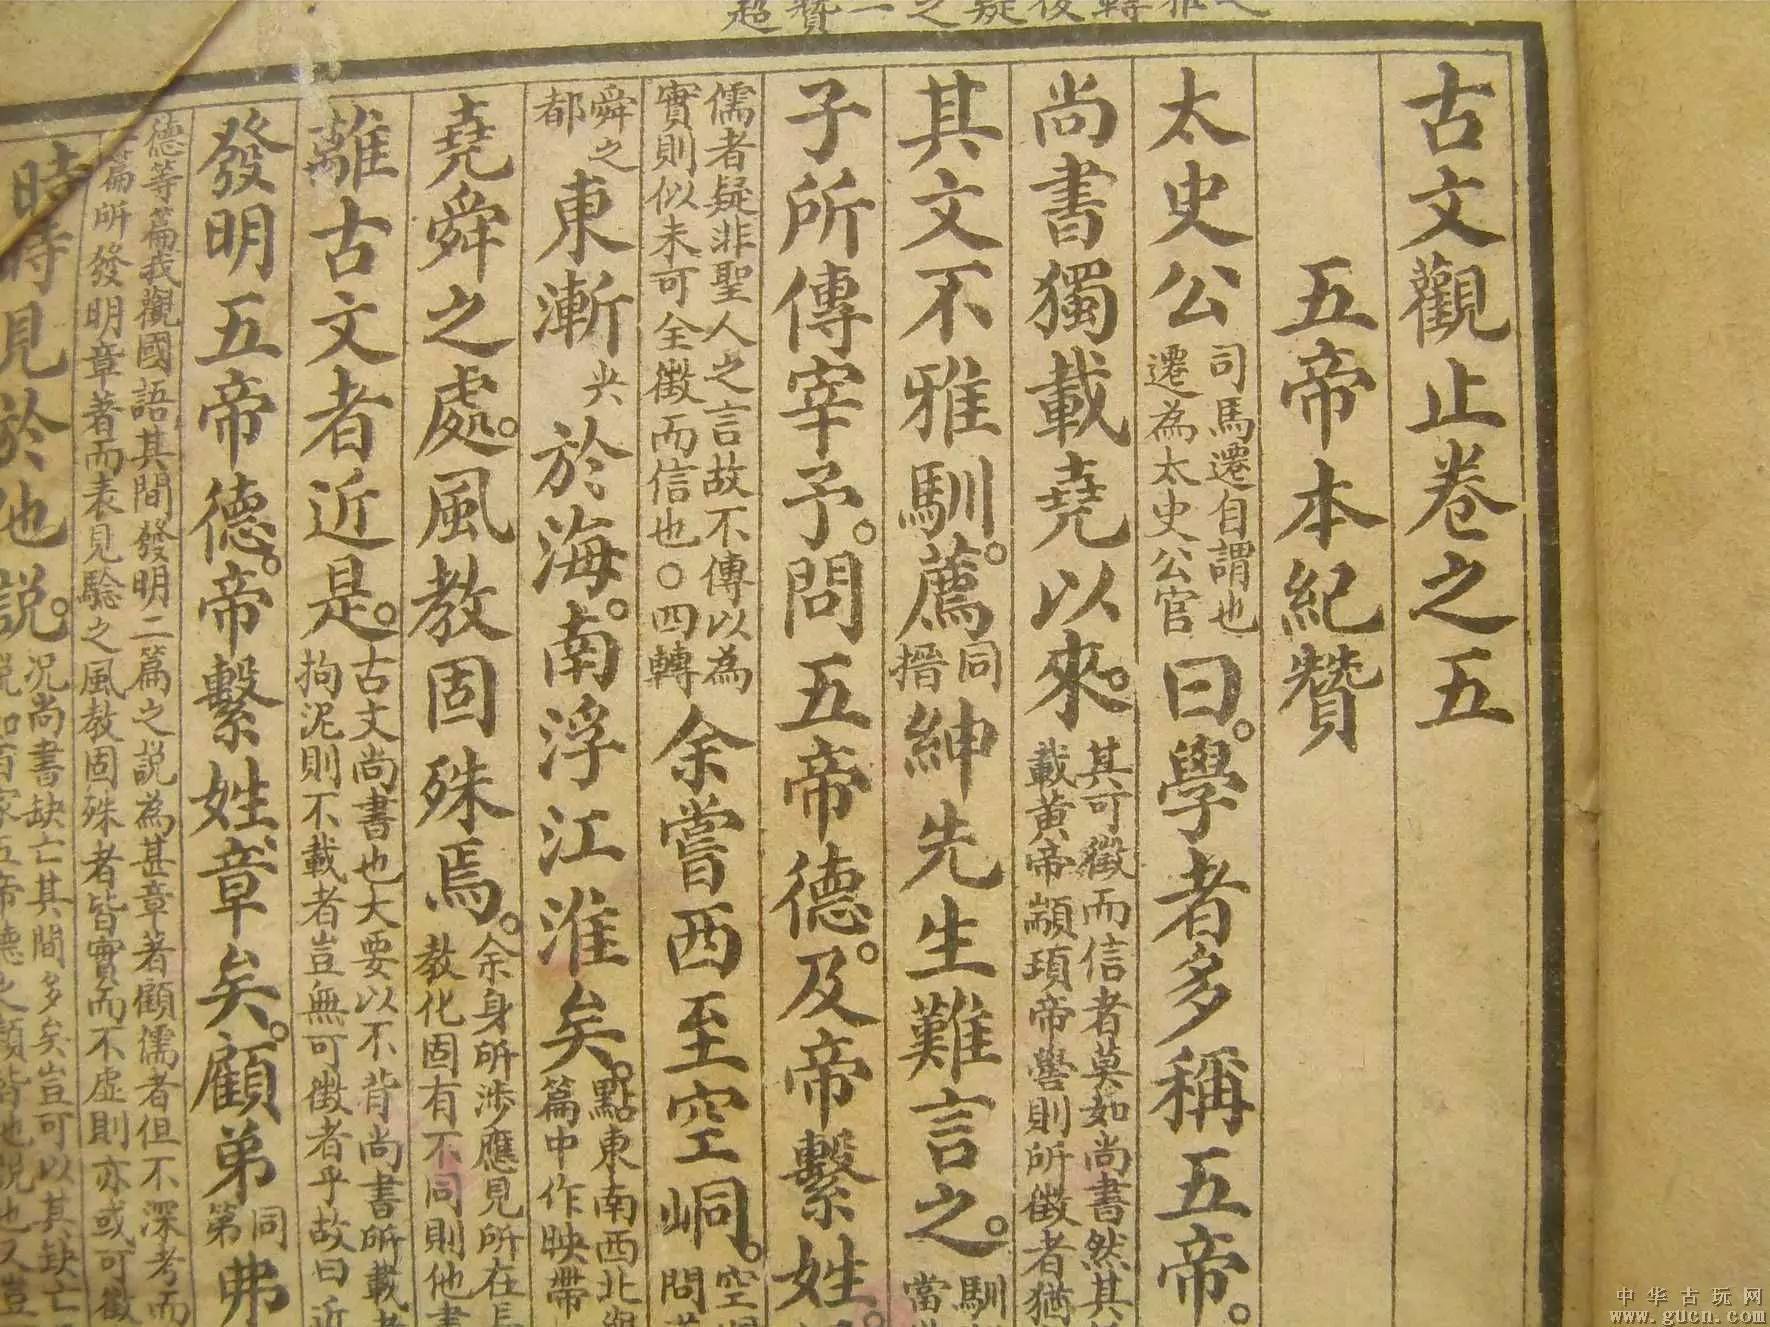 之雅轉後疑之一贊超
古文觀止卷之五
五帝本紀贊
太史公司馬遷自謂也遷為太史公官曰。學者多稱五帝。
尚書獨載堯以來。其可徵而信者莫如尚書然其載黃帝顓頊帝嚳則所徵者猶
其文不雅馴。薦同搢紳先生難言之。馴當
子所傳宰予。問五帝德。及帝繫姓。
儒者疑非聖人之言故不傳以為實則似未可全徵而信也○四轉余嘗西至空峒。空問
舜之都東漸尖於海。南浮江淮矣。點東南西北篇中作映帶
堯舜之處。風教固殊焉。余身所涉應見所在長教化固有不同則他書
離古文者近是。古文尚書也大要以不背尚書所載者拘泥則不載者豈無可徵者乎故曰近
發明五帝德。帝繫姓章矣。顧弟同第弗
德等篇我觀國語其間發明二篇之說為甚章著顧儒者但不深考而
篇所發明章著而表見驗之風教固殊者皆實而不虛則亦或可徵
時時見於他說。況尚書缺亡其間多矣豈可以其缺亡說如百家五帝德之類皆他說也又豈
中华古玩网
www.gucn.com